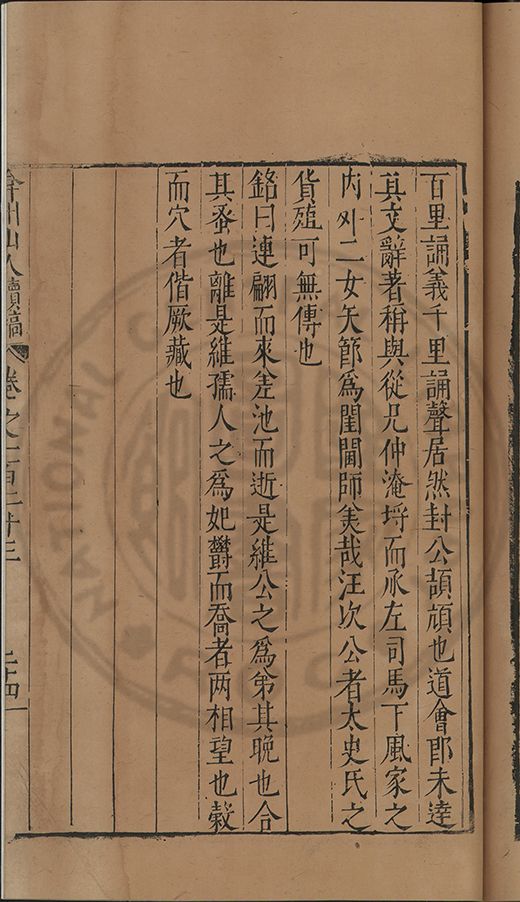 百里誦義千里誦聲居然封公頡頏也道會郎未達
其文辭著稱與從兄仲淹埒而承左司馬下風家之
內外二女矢節為閨閫師美哉汪次公者太史氏之
貨殖可無傳也
銘曰連翩而來差池而逝是維公之為弟其晚也合
其蚤也離是維孺人之為妃欝而喬者两相望也穀
而穴者偕厥藏也
弇州山人續稿 卷之一百二十三 二十四